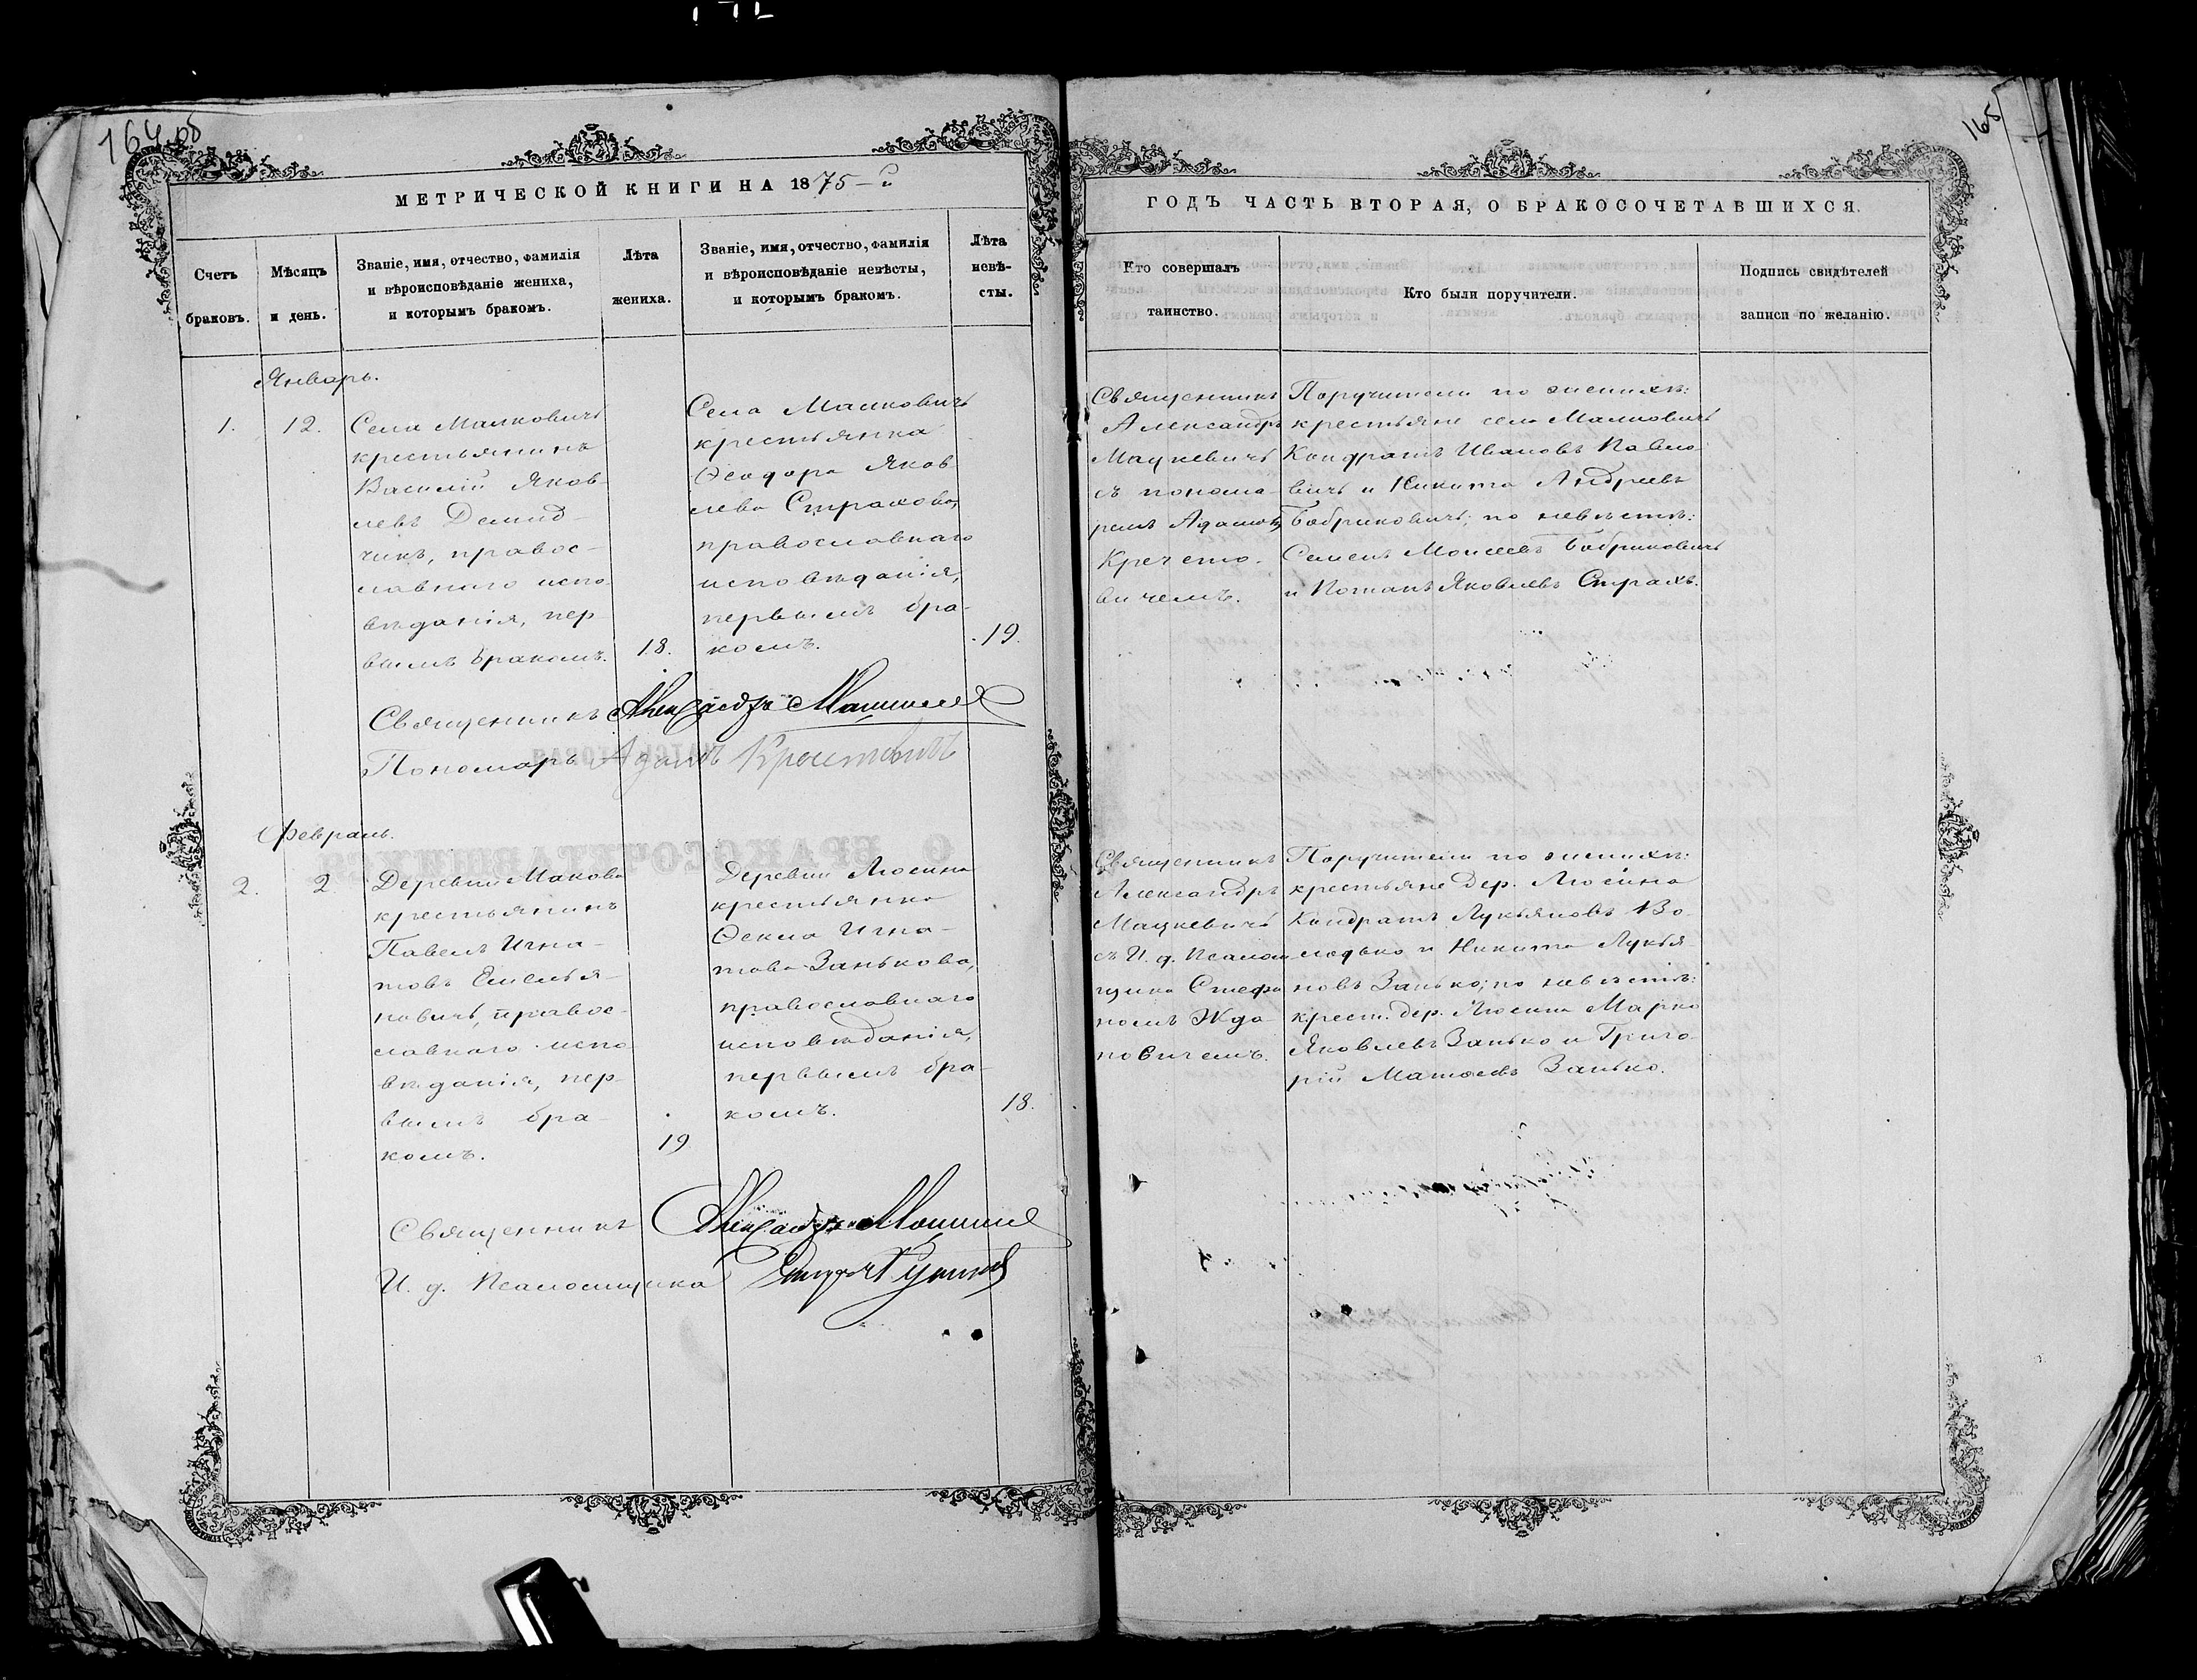 164 об
МЕТРИЧЕСКОЙ КНИГИ НА 1875-й
Счетъ браковъ.
Мѣсяцъ и день.
Званіе, имя, отчество, фамилія
и вѣроисповѣданіе жениха,
и которымъ бракомъ.
Лѣта жениха.
Званіе, имя, отчество, фамилія
и вѣроисповѣданіе невѣсты,
и которымъ бракомъ.
Лѣта
невѣ-
сты.
Январь.
1.
12.
Села Малковичь
крестьянинъ
Василій Яков-
левъ Демид-
чикъ, правос-
лавнаго испо-
вѣданія, пер-
вымъ бракомъ.
18.
Села Малковичь
крестьянка
Ѳеодора Яков-
лева Страхова,
православнаго
исповѣданія,
первымъ бра-
комъ.
19.
Священникъ Александръ Мацкевичъ
Пономарь Адамъ
Февраль.
2.
2.
Деревни Макова
крестьянинъ
Павелъ Игна-
товъ Емелья-
новичъ, правос-
лавнаго испо-
вѣданія, пер-
вымъ бра-
комъ.
19
Деревни Люсина
крестьянка
Ѳекла Игна-
това Занькова,
православнаго
исповѣданія,
первымъ бра-
комъ.
18.
Священникъ Александръ Мацкевичъ
И. д. Псаломщика
165
ГОДЪ ЧАСТЬ ВТОРАЯ, О БРАКОСОЧЕТАВШИХСЯ.
Кто совершалъ
таинство.
Кто были поручители.
Подпись свидѣтелей
записи по желанію.
Священникъ
Александръ
Мацкевичъ
съ понома-
ремъ Адамомъ
Кречето-
вичемъ.
Поручители по женихѣ:
крестьяне села Малковичь
Кондратъ Ивановъ Павло-
вичъ и Никита Андреевъ
Бобриковичъ; по невѣстѣ:
Семенъ Моисеевъ Бобриковичъ
и Потапъ Яковлевъ Страхъ.
Священникъ
Александръ
Мацкевичъ
съ И. д. Псалом-
щика Стефа-
номъ Жда-
новичемъ.
Поручители по женихѣ:
крестьяне дер. Люсина
Кондратъ Лукьяновъ Во-
лодько и Никита Лукья-
новъ Занько; по невѣстѣ:
крест. дер. Люсина Марко
Яковлевъ Занько и Григо-
рій Матѳеевъ Занько.